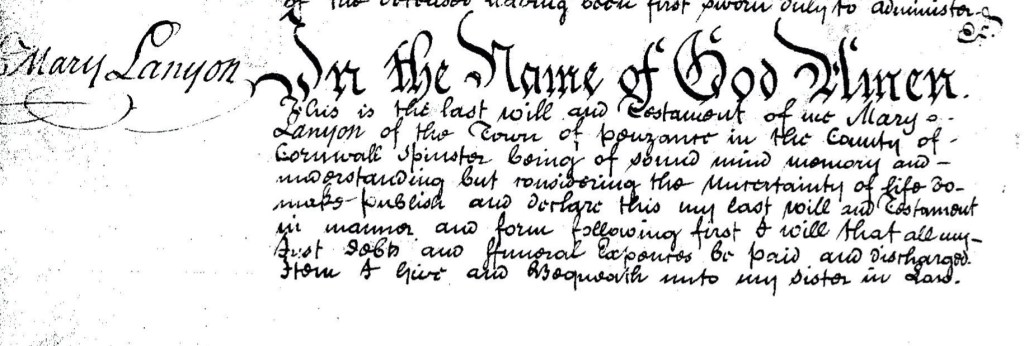 of the deceased having been first sworn duly to administer.
Mary Lanyon
In the Name of God Amen.
This is the last will and Testament of me Mary
Lanyon of the Town of penzance in the County of
Cornwall Spinster being of sound mind memory and
understanding but considering the Uncertainty of life do
make publish and declare this my last will and Testament
in manner and form following first I will that all my
Just debts and ffuneral Expences be paid and discharged.
Item I Give and Bequeath unto my sister in Law.